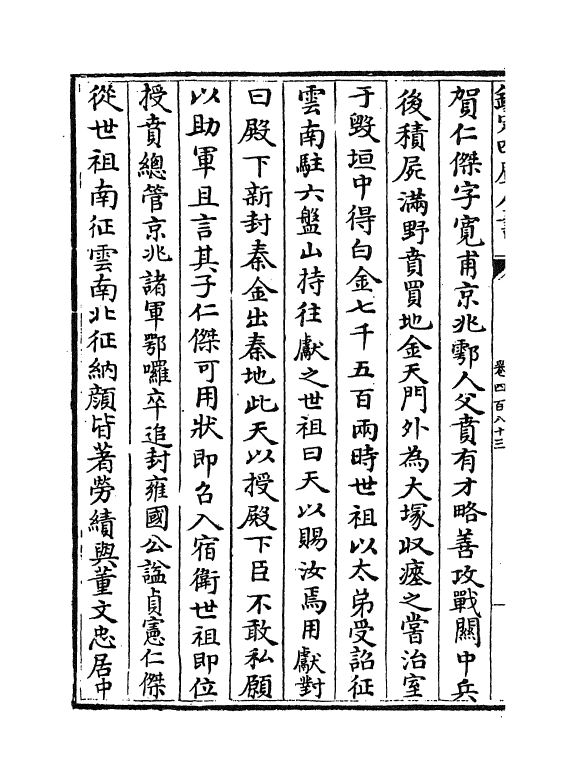 欽定四庫全書
卷四百八十三
賀仁傑字寬甫京兆鄠人父賁有才略善攻戰關中兵
後積屍滿野賁買地金天門外為大塚収瘞之嘗治室
于毀垣中得白金七千五百兩時世祖以太弟受詔征
雲南駐六盤山持往獻之世祖曰天以賜汝焉用獻對
曰殿下新封秦金出秦地此天以授殿下臣不敢私願
以助軍且言其子仁傑可用狀即召入宿衛世祖即位
授賁總管京兆諸軍鄂囉卒追封雍國公諡貞憲仁傑
從世祖南征雲南北征納顔皆著勞績與董文忠居中